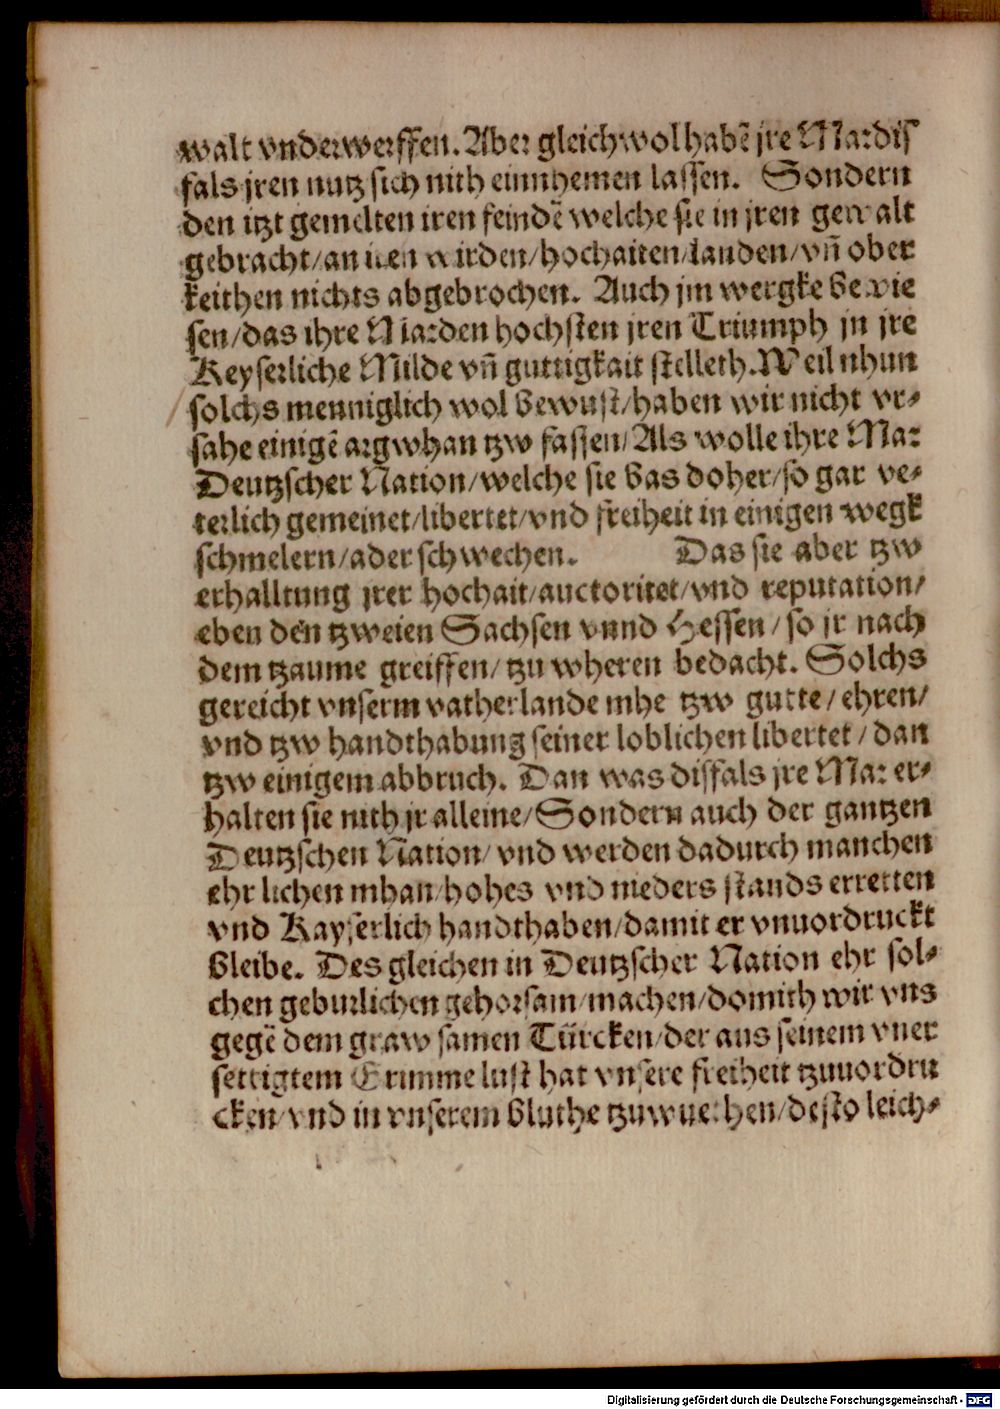 walt vnderwerffen. Aber gleichwol habē jre Mar dis
fals jren nutz sich nith einnhemen lassen. Sondern
den itzt gemelten iren feindē welche sie in jren gewalt
gebracht/an iren wirden/hochaiten/landen/vn̄ ober
keithen nichts abgebrochen. Auch jm wergke bewie
sen/das ihre Mar den hochsten jren Triumph jn jre
Keyserliche Milde vn̄ guttigkait stelleth. Weil nhun
solchs menniglich wol bewust/haben wir nicht vr⸗
sahe einigē argwhan tzw fassen/Als wolle ihre Mar
Deutzscher Nation/welche sie bas doher/so gar ve⸗
terlich gemeinet/libertet/vnd freiheit in einigen wegk
schmelern/ader schwechen. Das sie aber tzw
erhalltung jrer hochait/auctoritet/vnd reputation/
eben den tzweien Sachsen vnnd Hessen/so jr nach
dem tzaume greiffen/tzu wheren bedacht. Solchs
gereicht vnserm vatherlande mhe tzw gutte/ehren/
vnd tzw handthabung seiner loblichen libertet/dan
tzw einigem abbruch. Dan was disfals jre Mar er⸗
halten sie nith jr alleine/Sondern auch der gantzen
Deutzschen Nation/vnd werden dadurch manchen
ehrlichen mhan/hohes vnd nieders stands erretten
vnd Kayserlich handthaben/damit er vnuordruckt
bleibe. Des gleichen in Deutzscher Nation ehr sol⸗
chen geburlichen gehorsam/machen/domith wir vns
gegē dem grawsamen Türcken/der aus seinem vner
settigtem Grimme lust hat vnsere freiheit tzuuordru
cken/vnd in vnserem bluthe tzuwuethen/desto leich⸗
Digitalisierung gefördert durch die Deutsche Forschungsgemeinschaft - DFG